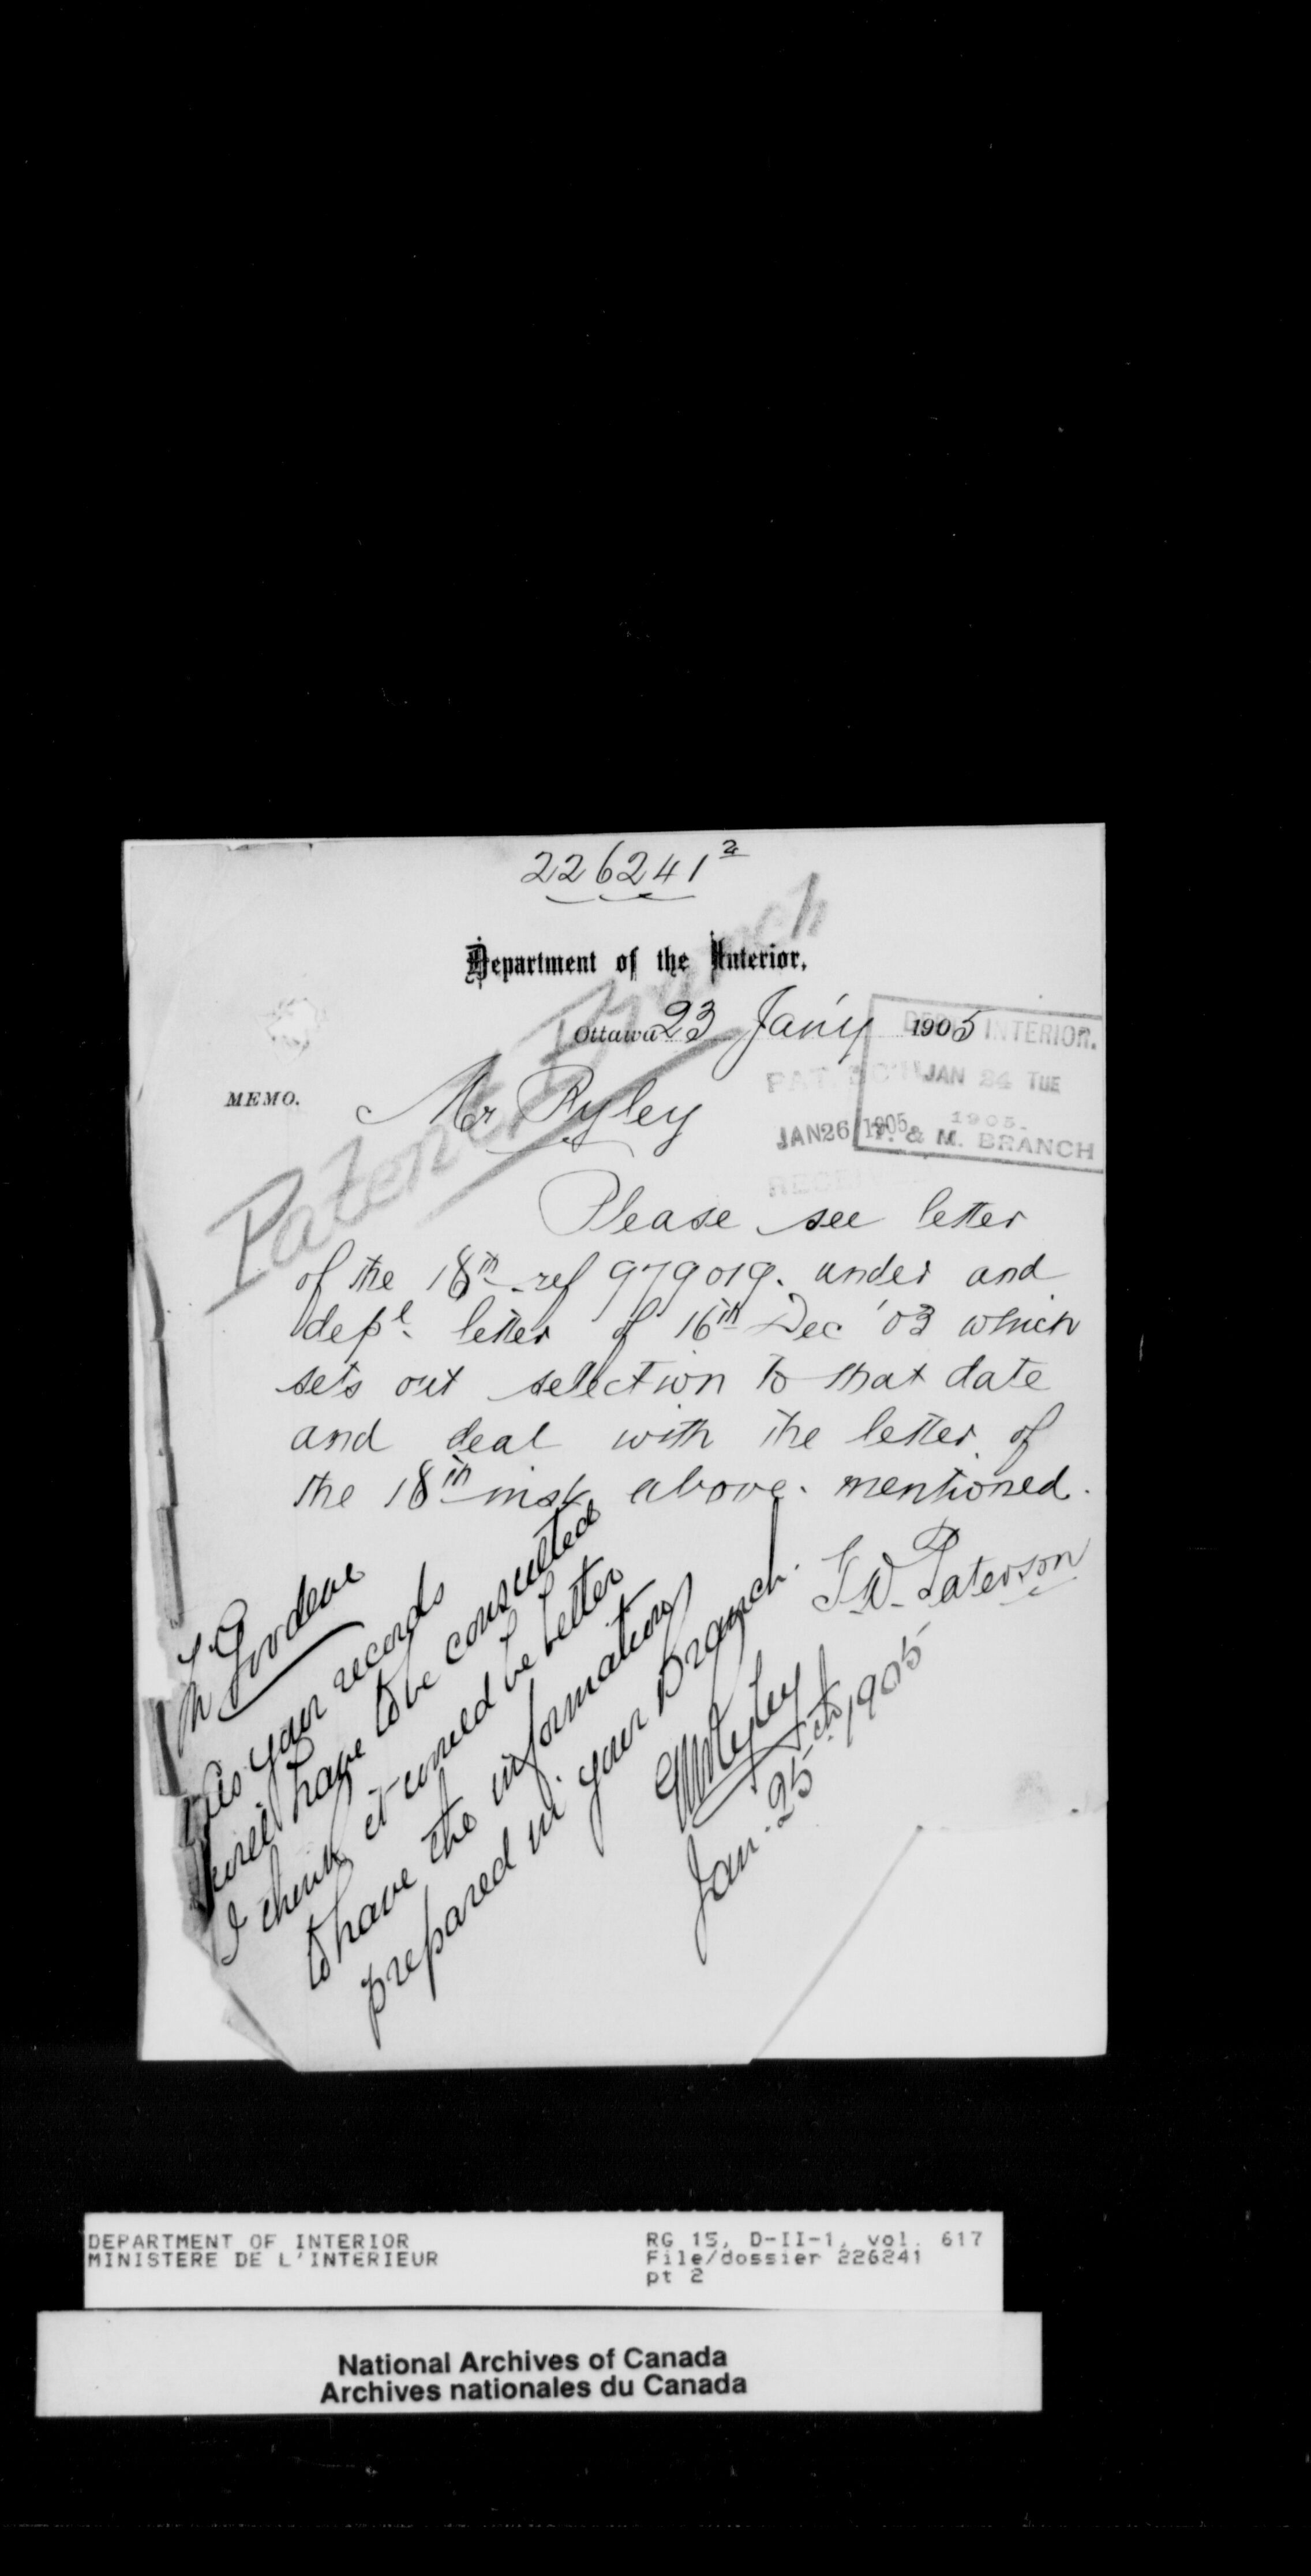 226241 2
Department of the Interior,
Ottawa 23 Jan'y 1905
MEMO.
Mr Ryley
Patents Branch
DEPT. INTERIOR.
JAN 24 TUE
1905.
T. & M. BRANCH
JAN 26 1905
RECEIVED
Please see letter
of the 18th ref 979019. under and
depl. letter of 16th Dec '03 which
sets out selection to that date
and deal with the letter of
the 18th inst above. mentioned.
T.W. Paterson
Mr Goodeve
As your records
will have to be consulted
I think it would be better
to have the information
prepared in your Branch.
GURyley
Jan. 25th 1905
DEPARTMENT OF INTERIOR
MINISTERE DE L'INTERIEUR
RG 15, D-II-1, vol. 617
File/dossier 226241
pt 2
National Archives of Canada
Archives nationales du Canada